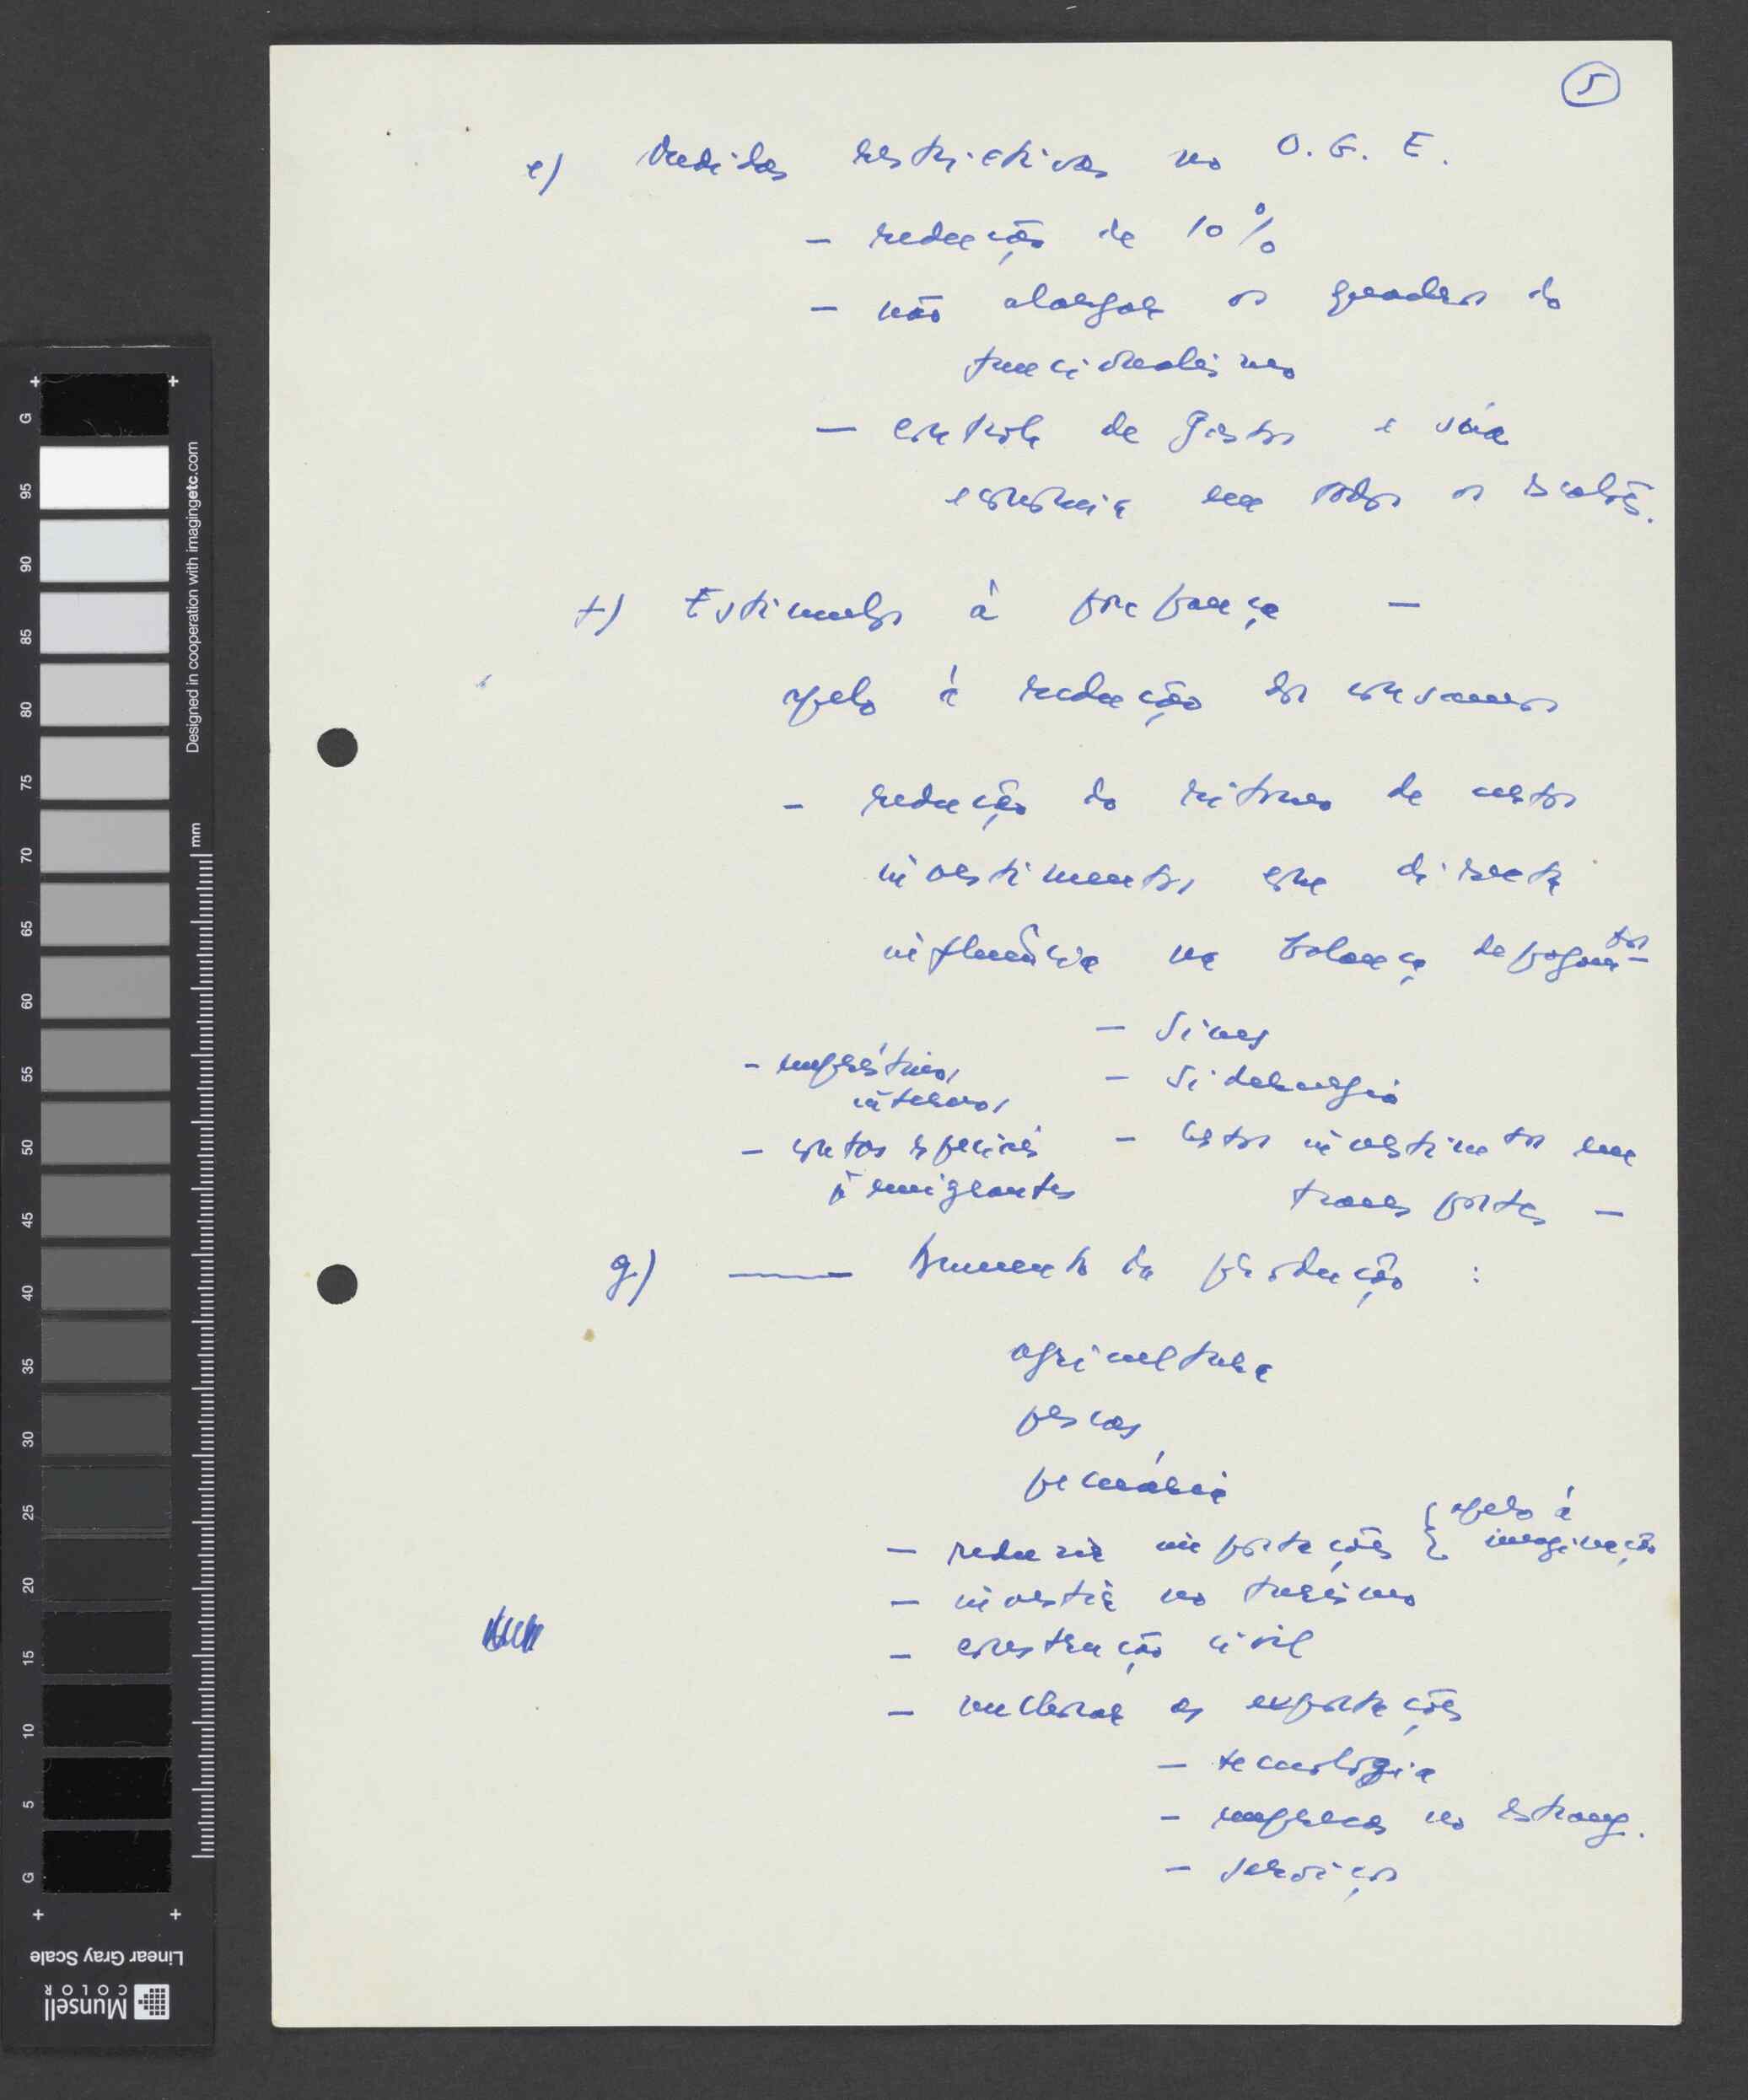 5
e) Medidas restrictivas no O. G. E.
- redução de 10%
- não alargar os quadros do
funcionalismo
- controle de gastos e
economia em todos os escalões.
f) Estimulos à poupança -
apelo à redução dos consumos
- redução do ritmo de certos
investimentos com directa
influência na balança de pagamtos -
- Sines
- empréstimos
internos
- Siderurgia
- contas especiais
p/ emigrantes
- Certos investimtos em
transportes -
g) — Aumento da produção :
agricultura
pescas
pecuária
- reduzir importações { apelo à
imaginação
- investir no turismo
- construção civil
- melhorar as exportações
- tecnologia
- empresas no estrang.
- serviços
G
95
90
85
80
75
70
65
60
55
50
45
40
35
30
25
20
15
10
5
G
Designed in cooperation with imagingetc.com
mm
Linear Gray Scale
Munsell
COLOR